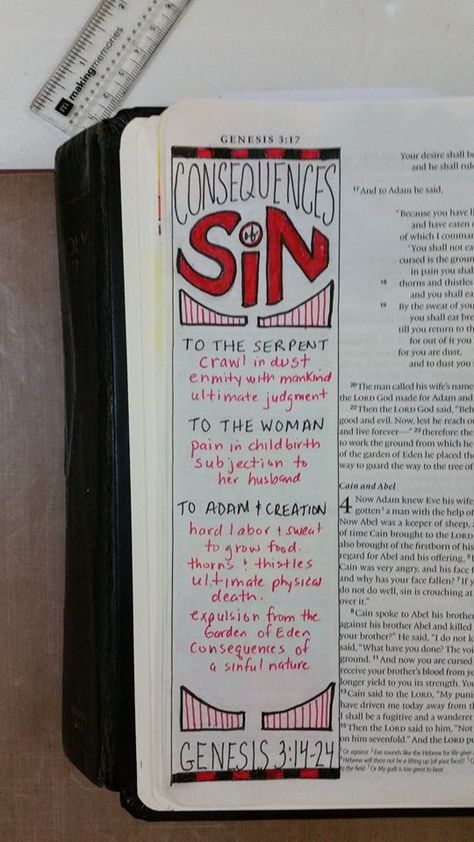 making memories
GENESIS 3:17
CONSEQUENCES
of
SiN
TO THE SERPENT
crawl in dust
enmity with mankind
ultimate judgment
TO THE WOMAN
pain in childbirth
subjection to
her husband
TO ADAM & CREATION
hard labor & sweat
to grow food.
thorns & thistles
ultimate physical
death.
expulsion from the
Garden of Eden
Consequences of
a sinful nature
GENESIS 3:14-24
Your desire shall
and he shall
17 And to Adam he said,
"Because you have
and have eaten
of which I
'You shall not
cursed is the
in pain you shall
18 thorns and thistles
and you shall
19 By the sweat of your
you shall eat
till you return to the
for out of it you
for you are dust,
and to dust
20 The man called his wife's name
the LORD God made for Adam and
22 Then the LORD God said,
good and evil. Now, lest he reach
and live forever—" 23 therefore the
to work the ground from which he
of the garden of Eden he placed the
way to guard the way to the tree of
Cain and Abel
4 Now Adam knew Eve his wife,
gotten a man with the help of
Now Abel was a keeper of sheep,
of time Cain brought to the LORD
also brought of the firstborn of his
regard for Abel and his offering,
Cain was very angry, and his face
and why has your face fallen?
do not do well, sin is crouching at
over it."
8 Cain spoke to Abel his brother
against his brother Abel and killed
your brother?" He said, "I do not
said, "What have you done? The
ground. 11 And now you are cursed
receive your brother's blood from
longer yield to you its strength. You
13 Cain said to the LORD, "My
have driven me today away from
I shall be a fugitive and a wanderer
15 Then the LORD said to him, "Not
on him sevenfold." And the LORD